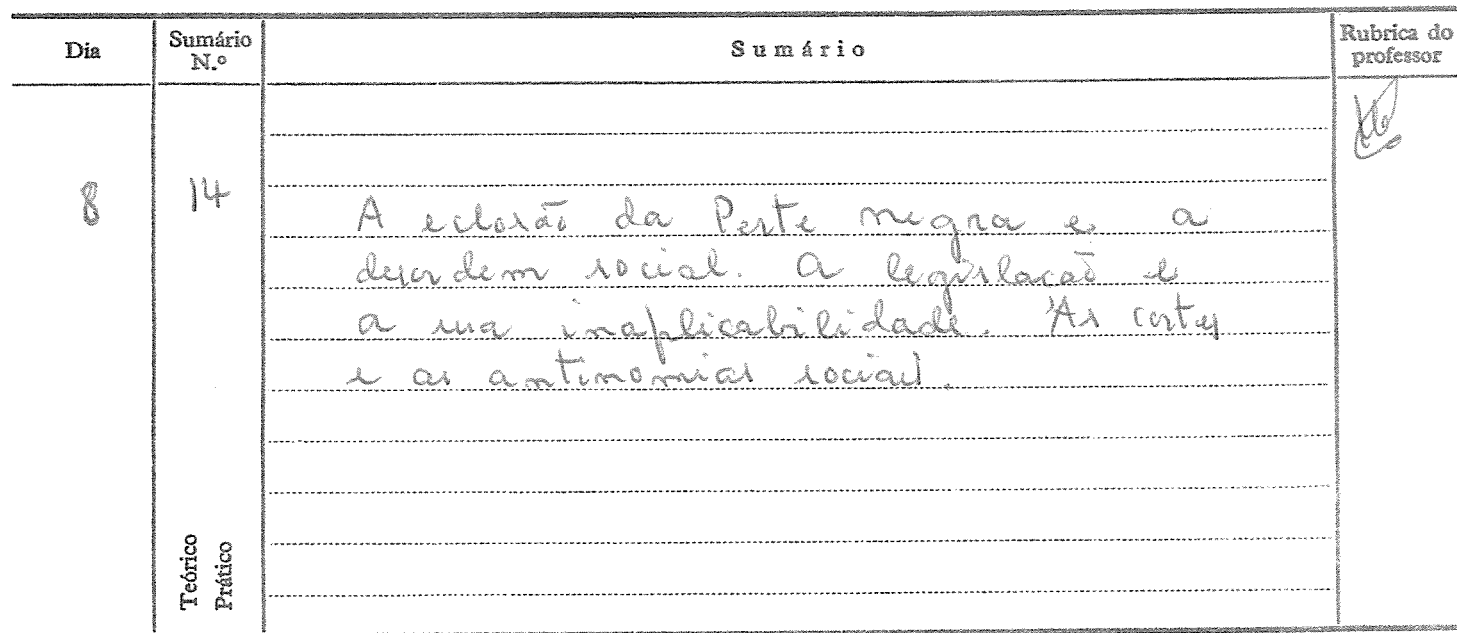 Dia Sumário N.º Sumário Rubrica do professor
8 14 A eclosão da Peste negra e a
desordem social. A legislação e
a sua inaplicabilidade. As cortes
e as antinomias sociais.
Teórico
Prático